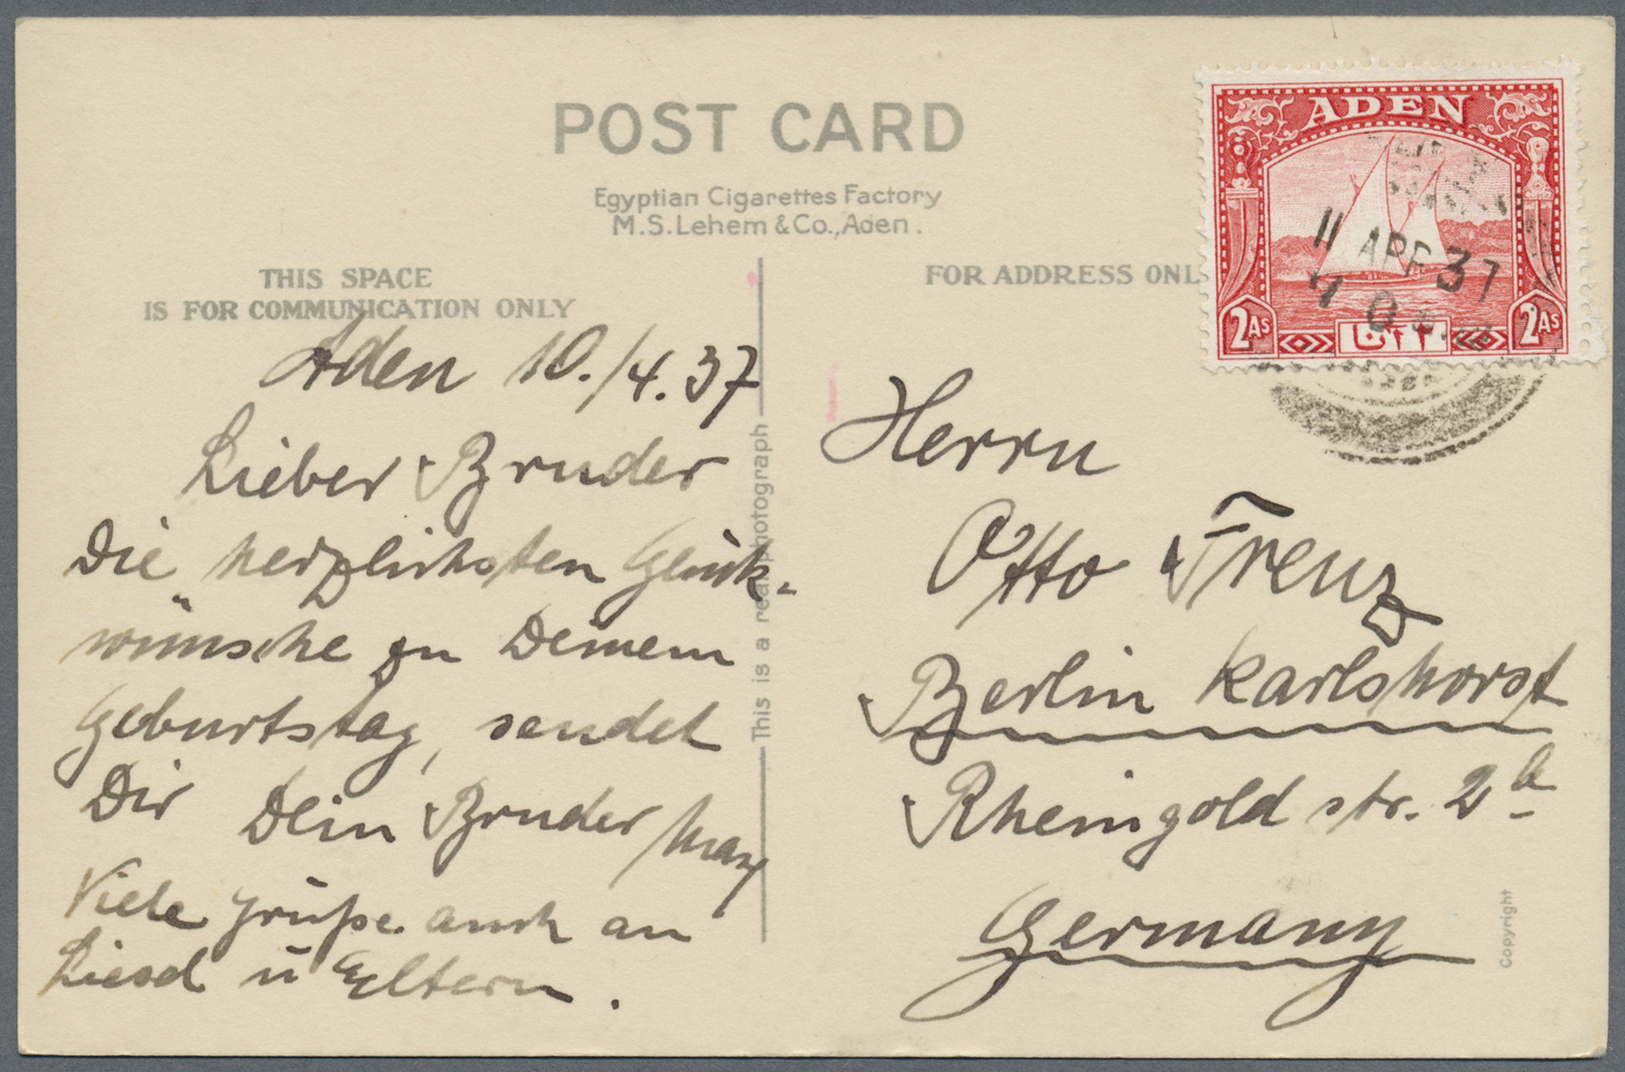 POST CARD
Egyptian Cigarettes Factory
M.S. Lehem & Co., Aden.
THIS SPACE
IS FOR COMMUNICATION ONLY
Aden 10./4.37
Lieber Bruder
Die herzlichsten Glück-
wünsche zu Deinem
Geburtstag, sendet
Dir Dein Bruder Max
Viele Grüße auch an
Liesel u Eltern.
This is a real photograph
FOR ADDRESS ONL
ADEN
11 APR 37
2As
2As
Herrn
Otto Frenz
Berlin Karlshorst
Rheingold str. 2a
Germany
Copyright